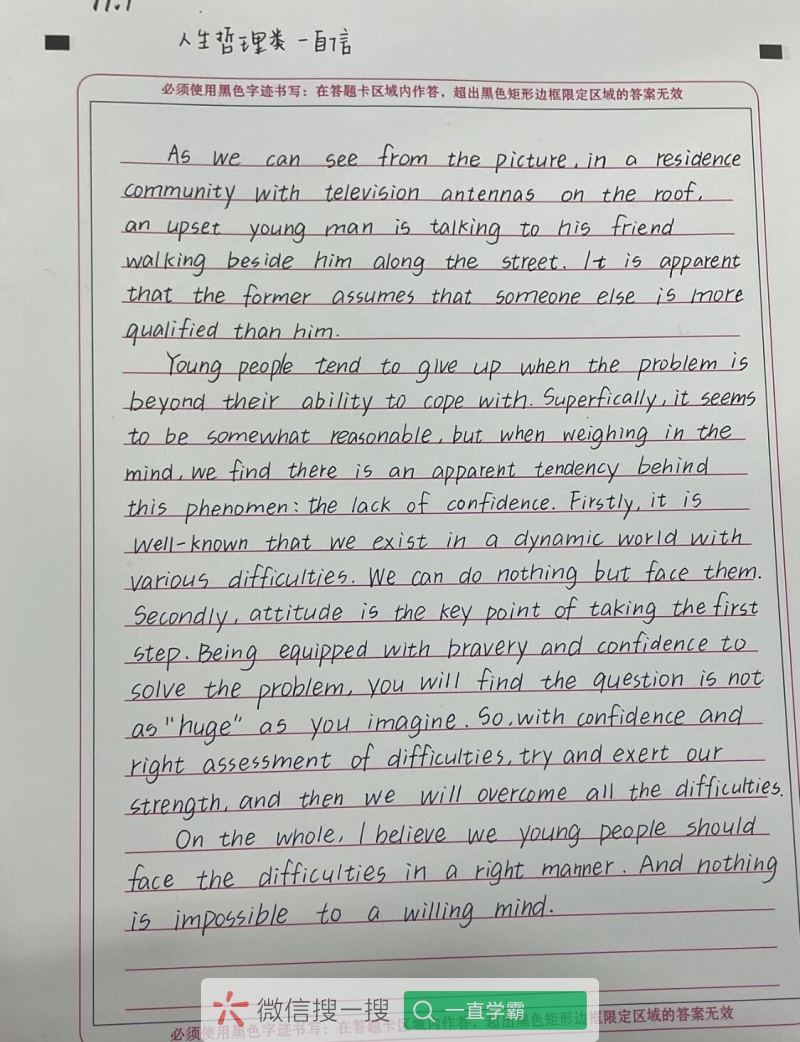 11.1
人生哲理类-自信
必须使用黑色字迹书写：在答题卡区域内作答，超出黑色矩形边框限定区域的答案无效
As we can see from the picture, in a residence
community with television antennas on the roof,
an upset young man is talking to his friend
walking beside him along the street. It is apparent
that the former assumes that someone else is more
qualified than him.
Young people tend to give up when the problem is
beyond their ability to cope with. Superfically, it seems
to be somewhat reasonable, but when weighing in the
mind, we find there is an apparent tendency behind
this phenomen: the lack of confidence. Firstly, it is
well-known that we exist in a dynamic world with
various difficulties. We can do nothing but face them.
Secondly, attitude is the key point of taking the first
step. Being equipped with bravery and confidence to
solve the problem, you will find the question is not
as "huge" as you imagine. So, with confidence and
right assessment of difficulties, try and exert our
strength, and then we will overcome all the difficulties.
On the whole, I believe we young people should
face the difficulties in a right manner. And nothing
is impossible to a willing mind.
微信搜一搜 一直学霸
必须使用黑色字迹书写：在答题卡区域内作答，超出黑色矩形边框限定区域的答案无效